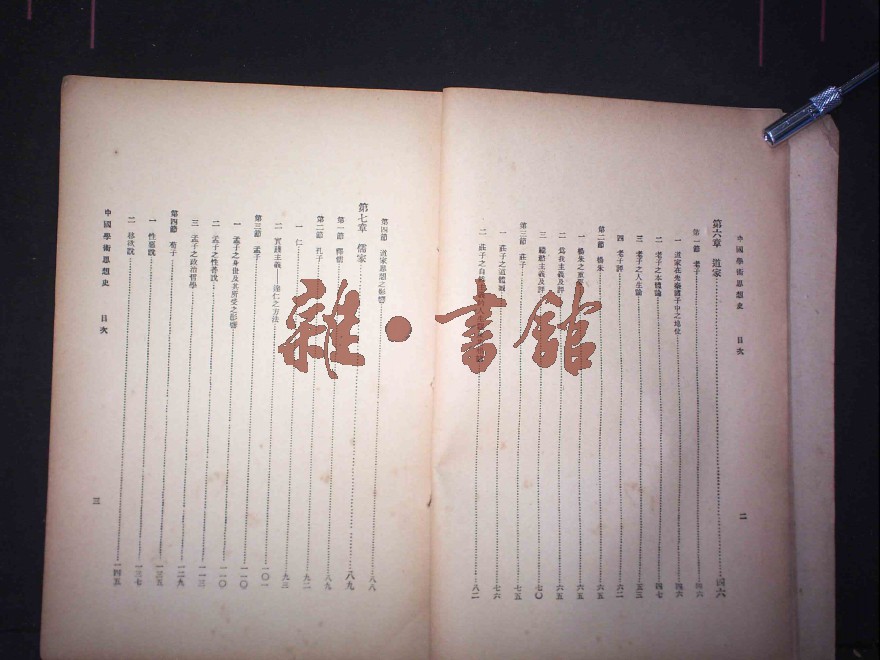 中國學術思想史 目次
第六章 道家 四六
第一節 老子 四六
一 道家在先秦諸子中之地位 四六
二 老子之本體論 四七
三 老子之人生論 五三
四 老子評 六二
第二節 楊朱 六五
一 楊朱之 六五
二 爲我主義及評 六五
三 縱慾主義及評 七〇
第三節 莊子 七五
一 莊子之道體觀 七六
二 莊子之自 八二
二
第四節 道家思想之影響 八八
第七章 儒家 八九
第一節 釋儒 八九
第二節 孔子 八九
一 仁 九二
二 實踐主義——達仁之方法 九三
第三節 孟子 一〇一
一 孟子之身世及其所受之影響 一一〇
二 孟子之性善說 一一〇
三 孟子之政治哲學 一一三
第四節 荀子 一二九
一 性惡說 一三五
二 移 說 一三七
一四五
中國學術思想史 目次
三
雜·書館